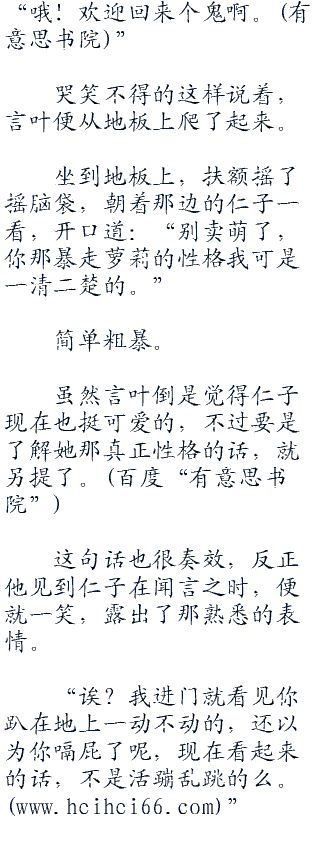 “哦！欢迎回来个鬼啊。(有
意思书院)”
哭笑不得的这样说着，
言叶便从地板上爬了起来。
坐到地板上，扶额摇了
摇脑袋，朝着那边的仁子一
看，开口道：“别卖萌了，
你那暴走萝莉的性格我可是
一清二楚的。”
简单粗暴。
虽然言叶倒是觉得仁子
现在也挺可爱的，不过要是
了解她那真正性格的话，就
另提了。(百度“有意思书
院”)
这句话也很奏效，反正
他见到仁子在闻言之时，便
就一笑，露出了那熟悉的表
情。
“诶？我进门就看见你
趴在地上一动不动的，还以
为你嗝屁了呢，现在看起来
的话，不是活蹦乱跳的么。
(www.hcihci66.com)”